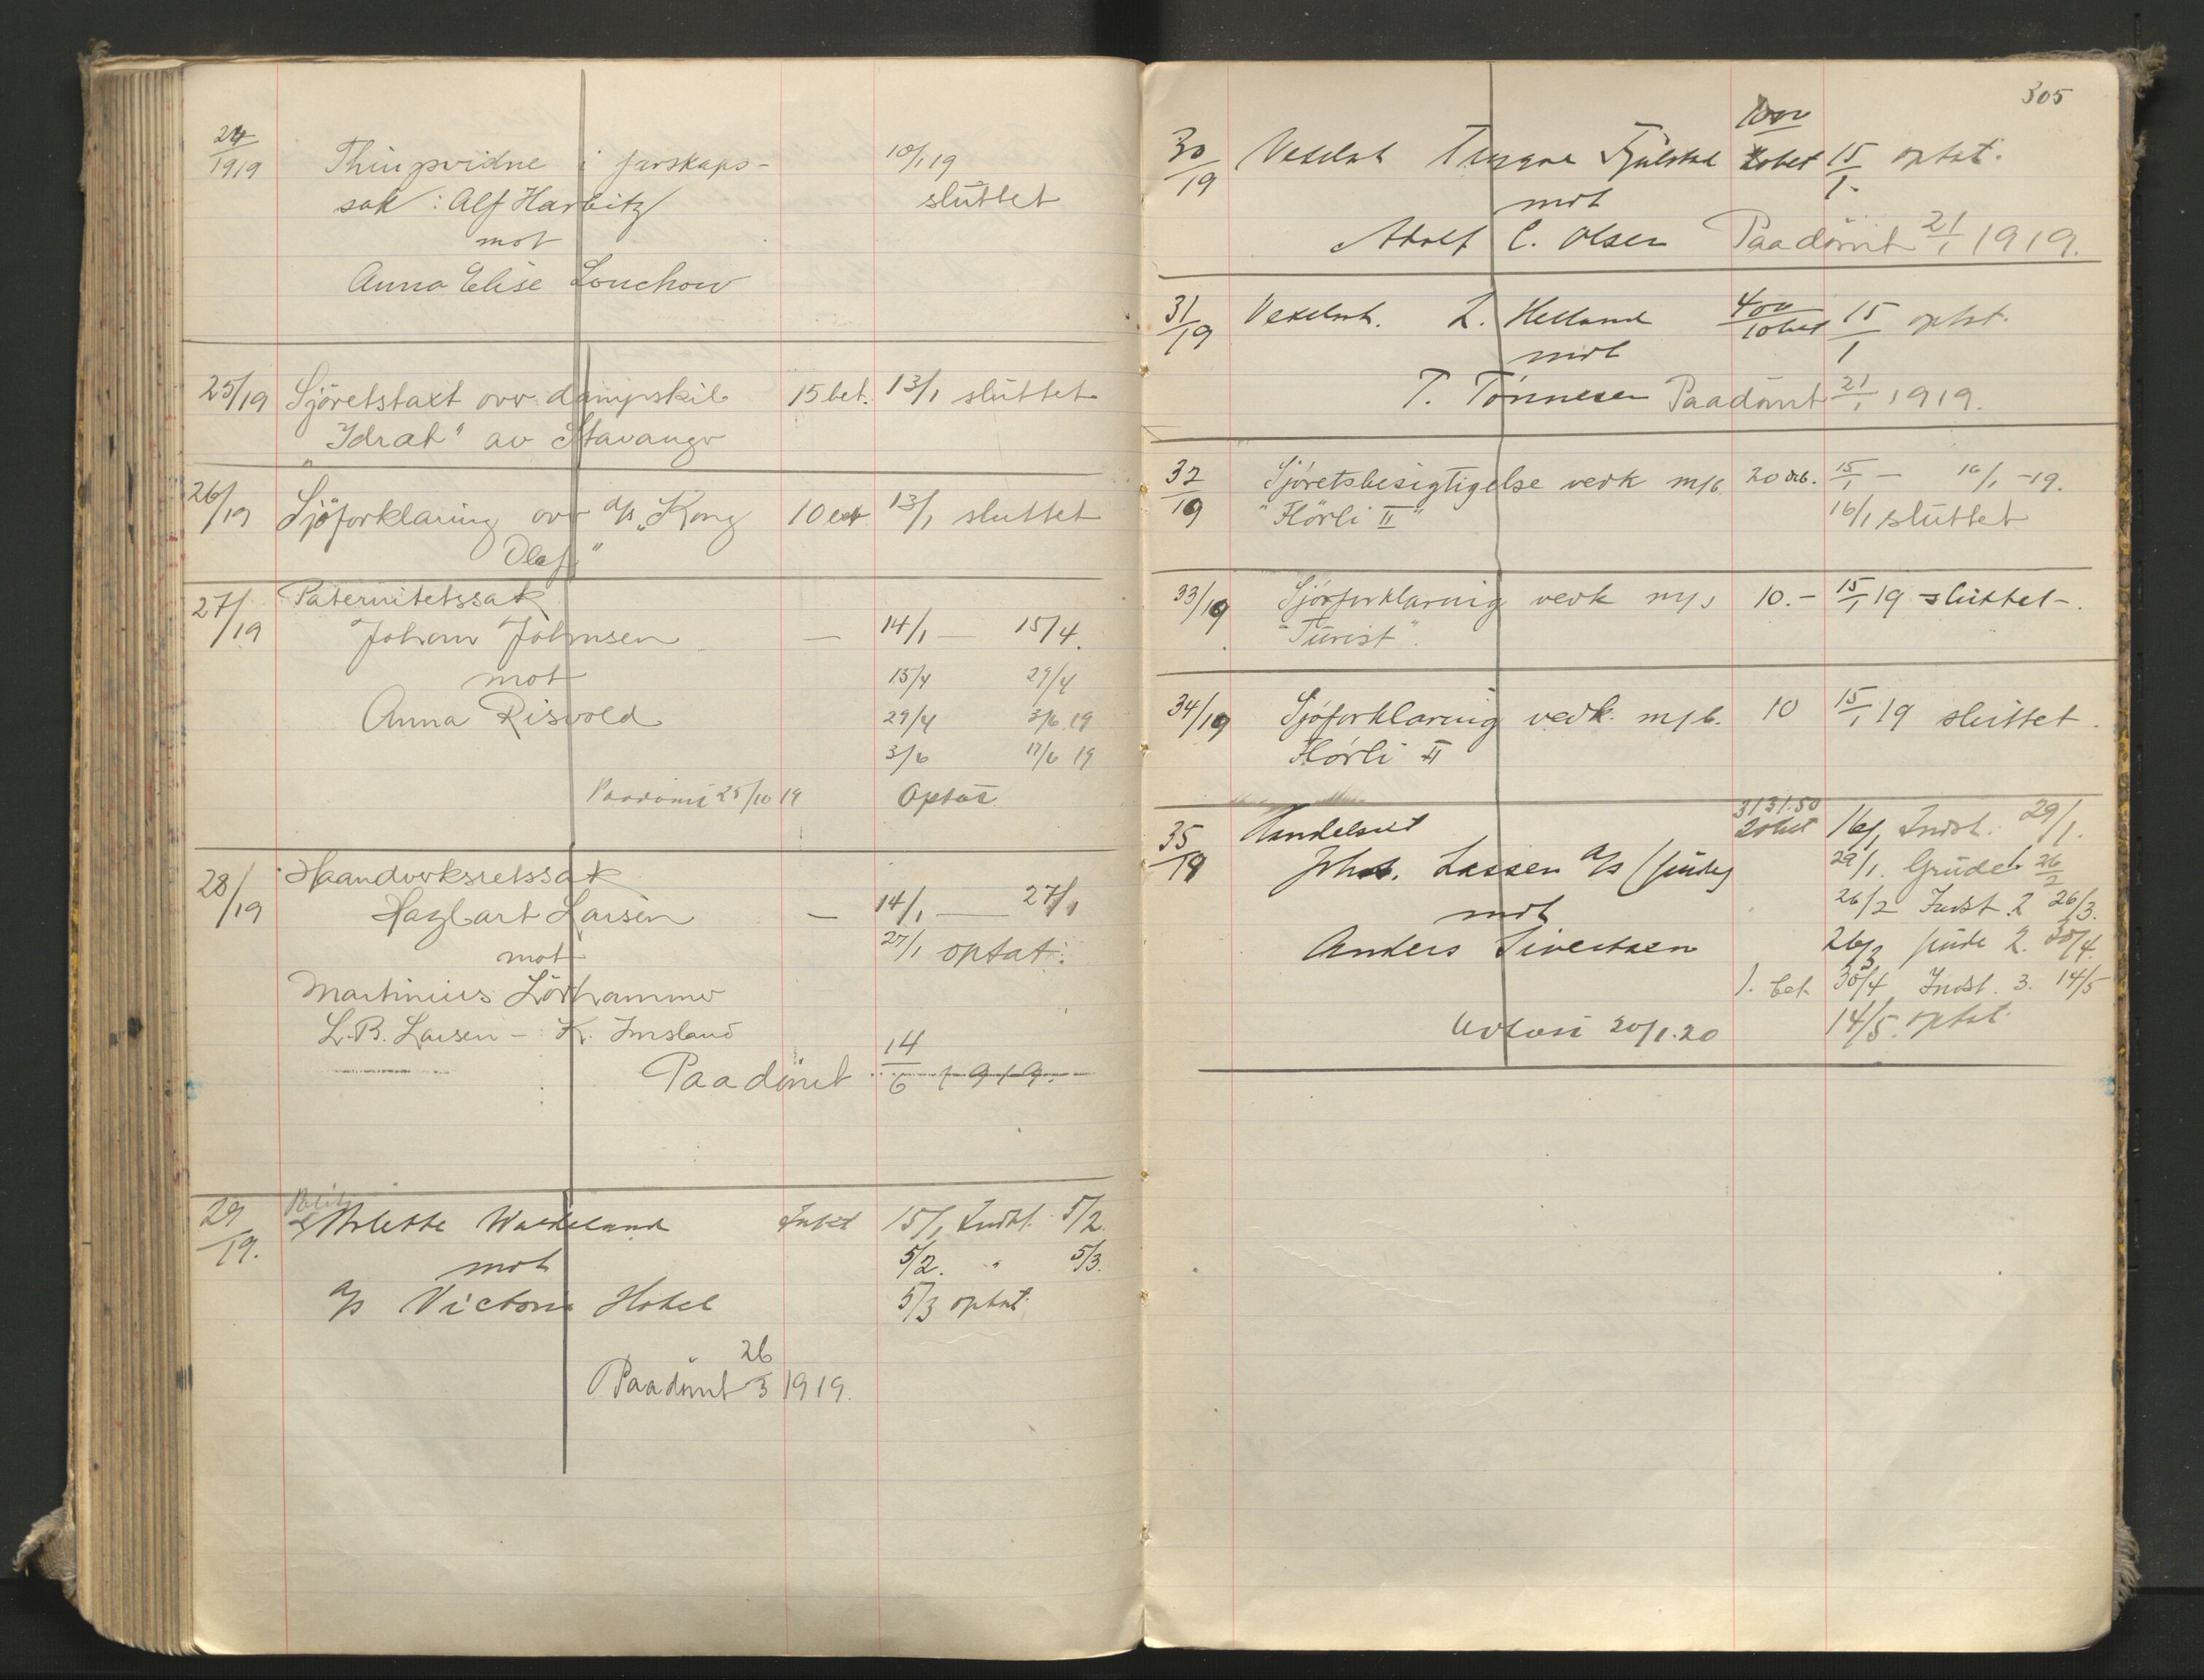 24/1919 Thingsvidne i farskaps- 10/1 19
sak: Alf Harbitz sluttet
mot
Anna Elise Louchow
25/19 Sjöretstaxt over dampskib 15 bet. 13/1 sluttet
"Idræt" av Stavanger
26/19 Sjöforklaring over d/s „Kong 10 bet 13/1 sluttet
Olaf"
27/19 Paternitetssak
Johan Johnsen — 14/1 — 15/4.
mot 15/4 29/4
Anna Risvold 29/4 3/6 19
3/6 17/6 19
Paadömt 25/10 19 Optat
28/19 Haandverksretssak
Hagbart Larsen — 14/1 — 27/1
mot 27/1 optat.
Martinius Lörhammer
L.B. Larsen – K. Imsland
Paadömt 14/6 1919.
29/19. Molette Wadeland 15/1 Indst. 5/2.
mot 5/2. " 5/3.
A/s Victoria Hotel 5/3 optat
Paadömt 26/3 1919.
305
30/19 Vekselsak Trygve Fjelstad 1000 bet 15/1 optat.
mot
Adolf C. Olsen Paadömt 21/1 1919.
31/19 Vekselsak. L. Helland 400 10 bet 15/1 optat.
mot
T. Tönnesen Paadömt 21/1 1919.
32/19 Sjöretsbesigtigelse vedk m/b. 20 bet. 15/1 — 16/1 -19.
"Flörli II" 16/1 sluttet
33/19 Sjöforklaring vedk m/s 10.- 15/1 19 sluttet.
"Turist".
34/19 Sjöforklaring vedk. m/b. 10 15/1 19 sluttet.
Flörli II
3131.50
35/19 Handelsret 20 bet 16/1 Indst. 29/1.
Johs. Lassen A/s 29/1. Gründet 26/2
mot 26/2 Indst. 2 26/3.
Anders Sivertsen 26/3 2. 30/4.
1. bet 30/4 Indst. 3. 14/5
Avlæst 20/1.20 14/5. optat.